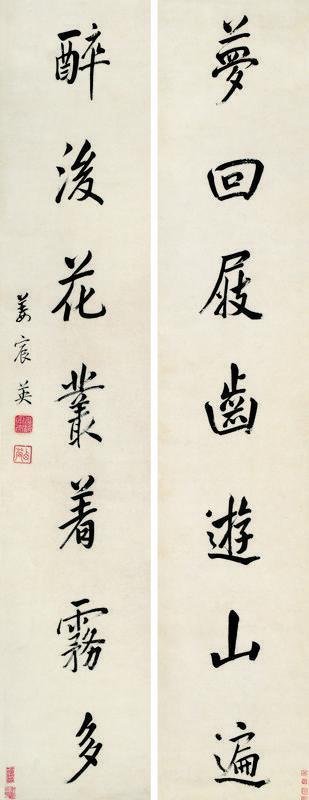 夢回屐齒遊山遍
醉後花叢着霧多
姜宸英